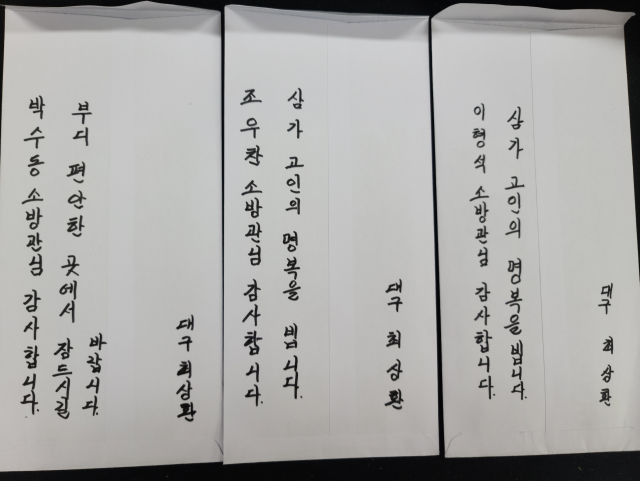 박수동 소방관님 감사합니다.
부디 편안한 곳에서 잠드시길
바랍니다.
대구 최상환
조우찬 소방관님 감사합니다.
삼가 고인의 명복을 빕니다.
대구 최상환
이형석 소방관님 감사합니다.
삼가 고인의 명복을 빕니다.
대구 최상환